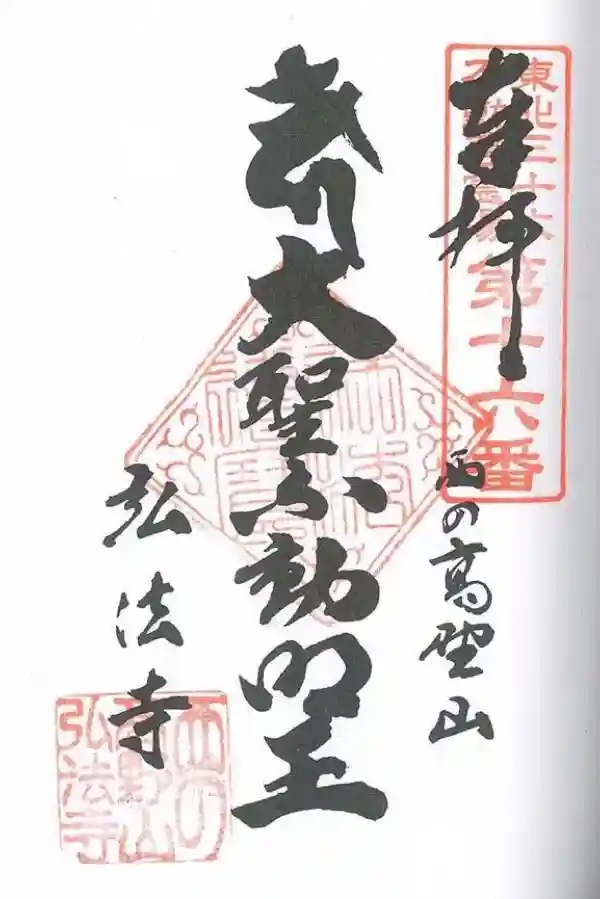 奉拝
東北三十六
不動尊霊場
第十六番
西の高野山
大聖不動明王
弘法寺
西の
高野山
弘法寺